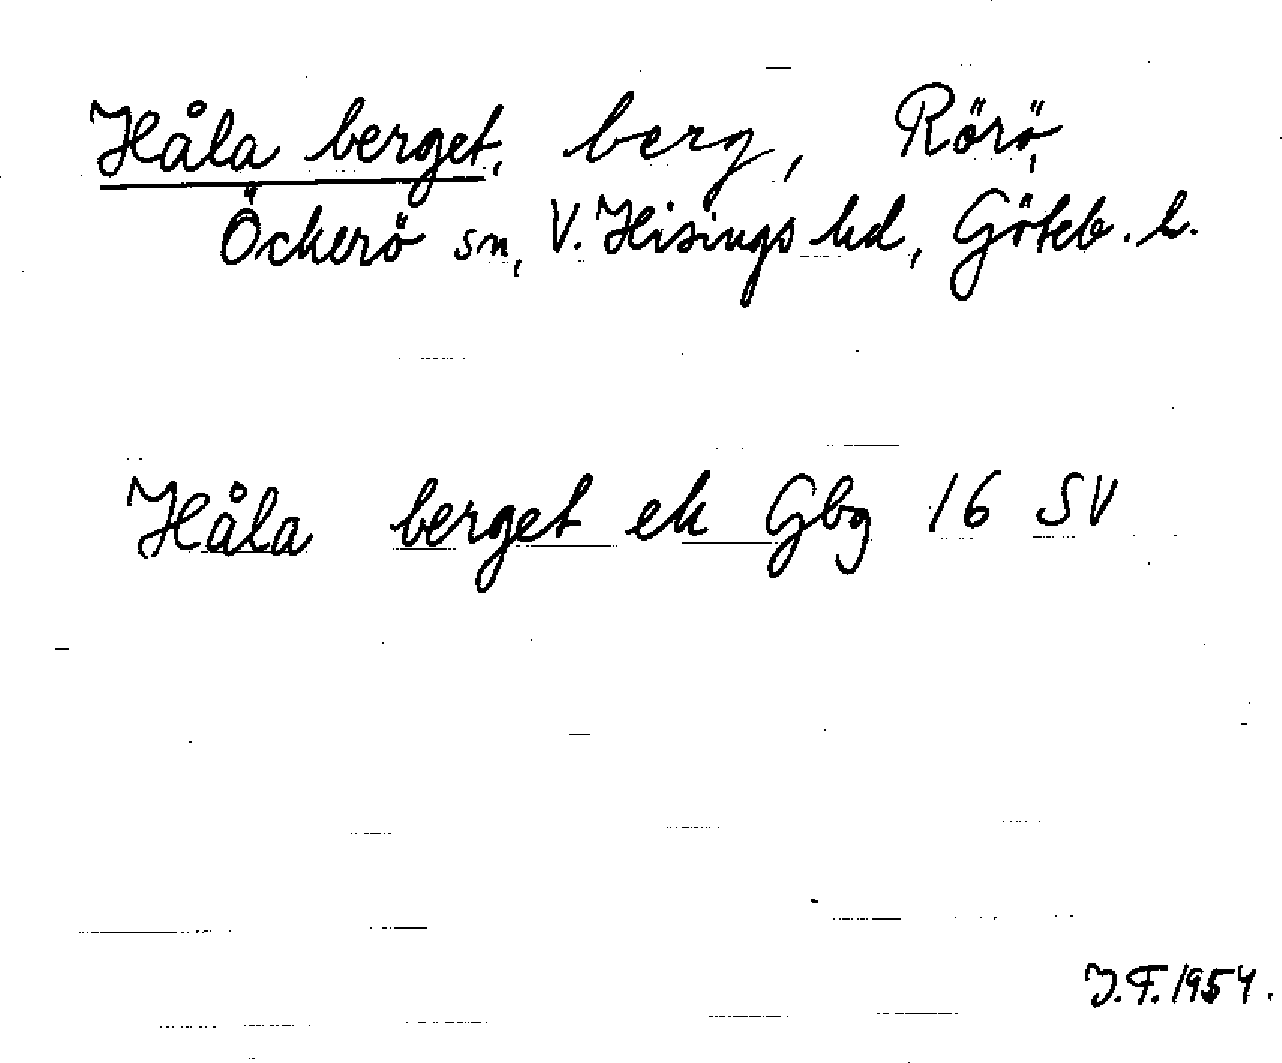 Håla berget, berg, Rörö,
Öckerö sn, V. Hisings hd, Göteb. l.
Håla berget ek Gbg 16 SV
J.F. 1954.